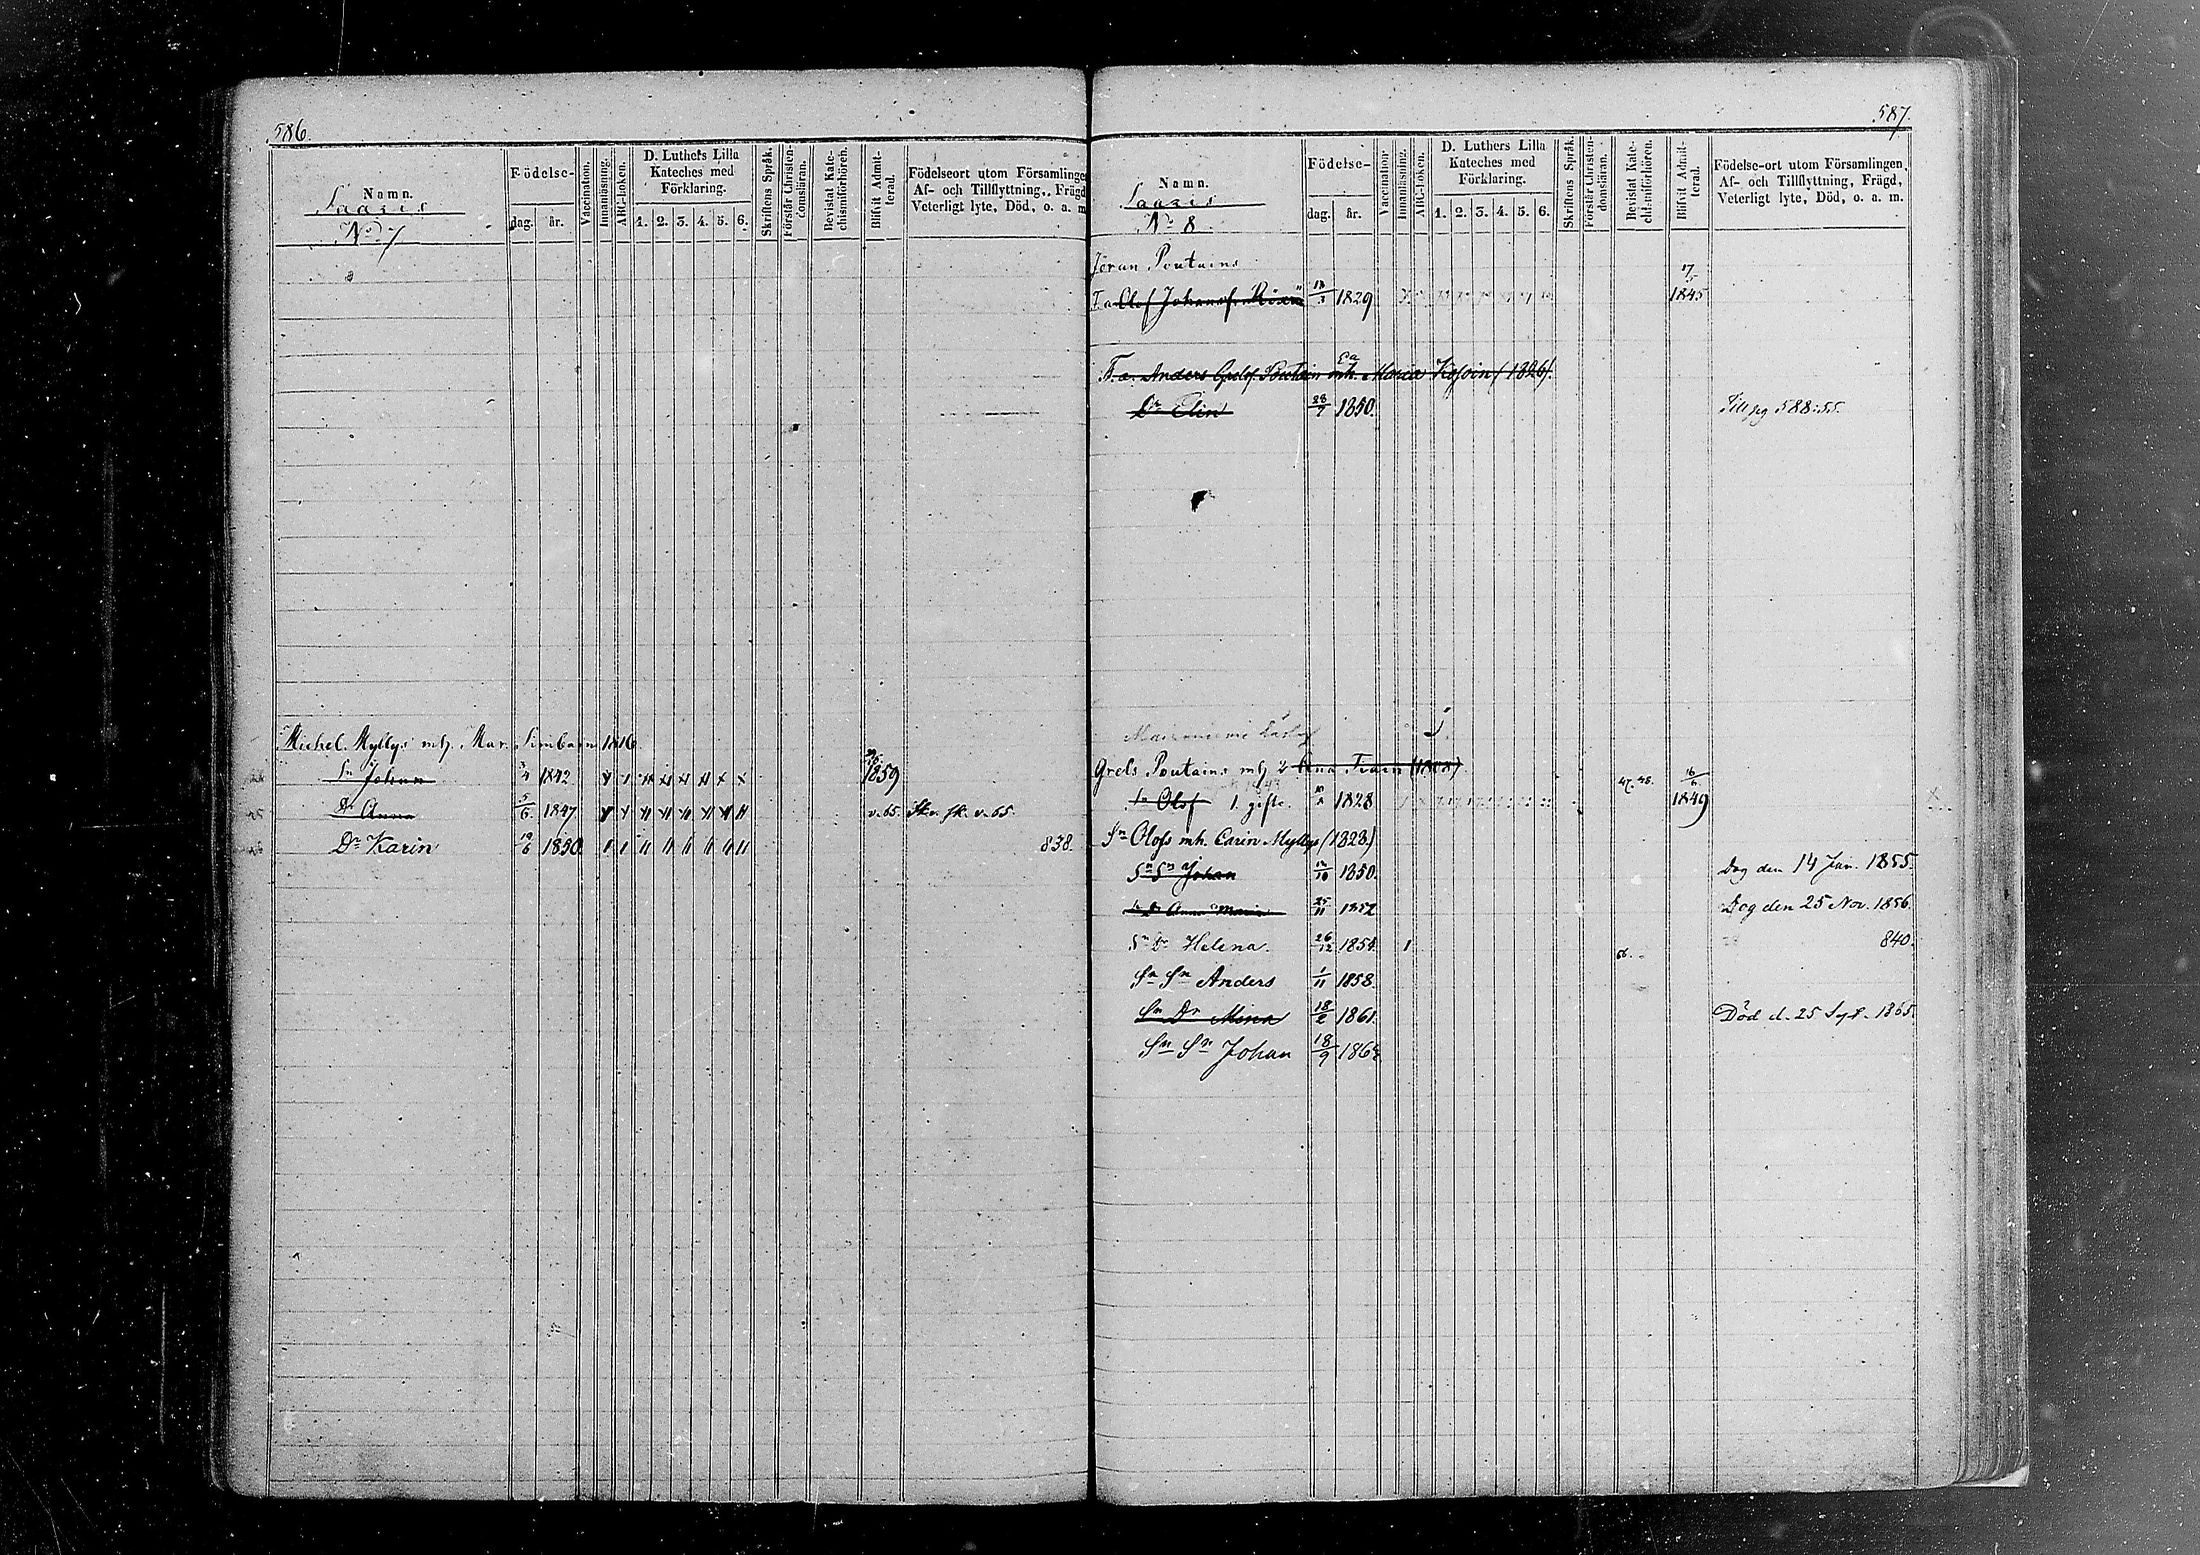 586.
Namn.
Födelse-
dag. år.
Vaccination.
Innanläsning.
ABC-boken.
D. Luthers Lilla
Kateches med
Förklaring.
1. 2. 3. 4. 5. 6.
Skriftens Språk.
Förstår Christen-
domsläran.
Bevistat Kate-
chismiförhören.
Blifvit Admit-
terad.
Födelseort utom Församlingen
Af- och Tillflyttning, Frägd,
Veterligt lyte, Död, o. a. m.
Saazis
No 7
Michel Myllys mh. Mar. 1816
Sn Johan 3/4 1842 1859
Dr Anna 5/6 1847 v. 65. v. 65.
Dr Karin 19/6 1850 838.
587.
Namn.
Födelse-
dag. år.
Vaccination.
Innanläsning.
ABC-boken.
D. Luthers Lilla
Kateches med
Förklaring.
1. 2. 3. 4. 5. 6.
Skriftens Språk.
Förstår Christen-
domsläran.
Bevistat Kate-
chismiförhören.
Blifvit Admit-
terad.
Födelse-ort utom Församlingen,
Af- och Tillflyttning, Frägd,
Veterligt lyte, Död, o. a. m.
Saazis
No 8
Jöran Poutains
Olof Johansf. 1829 1845
F. a. Anders Grelsf. Poutain mh. Maria (1826).
Dr Elin 28/7 1850. Till pg 588:55.
Grels Poutains mh 2 (1808)
Sn Olof 1. gifte. 1828 47. 48. 16/6 1849
Sn Olofs mh. Carin Myllys (1828)
Sn Sn Johan 1850. Dog den 14 Jan. 1855.
Sn Dr Anna Maria 25/11 1852 Dog den 25 Nov. 1856.
Sn Dr Helena. 26/12 1854. 1 56. 840.
Sn Sn Anders 1/11 1858.
Sn Dr Mina 18/2 1861. Död d. 25 Sept. 1865.
Sn Sn Johan 18/9 1864